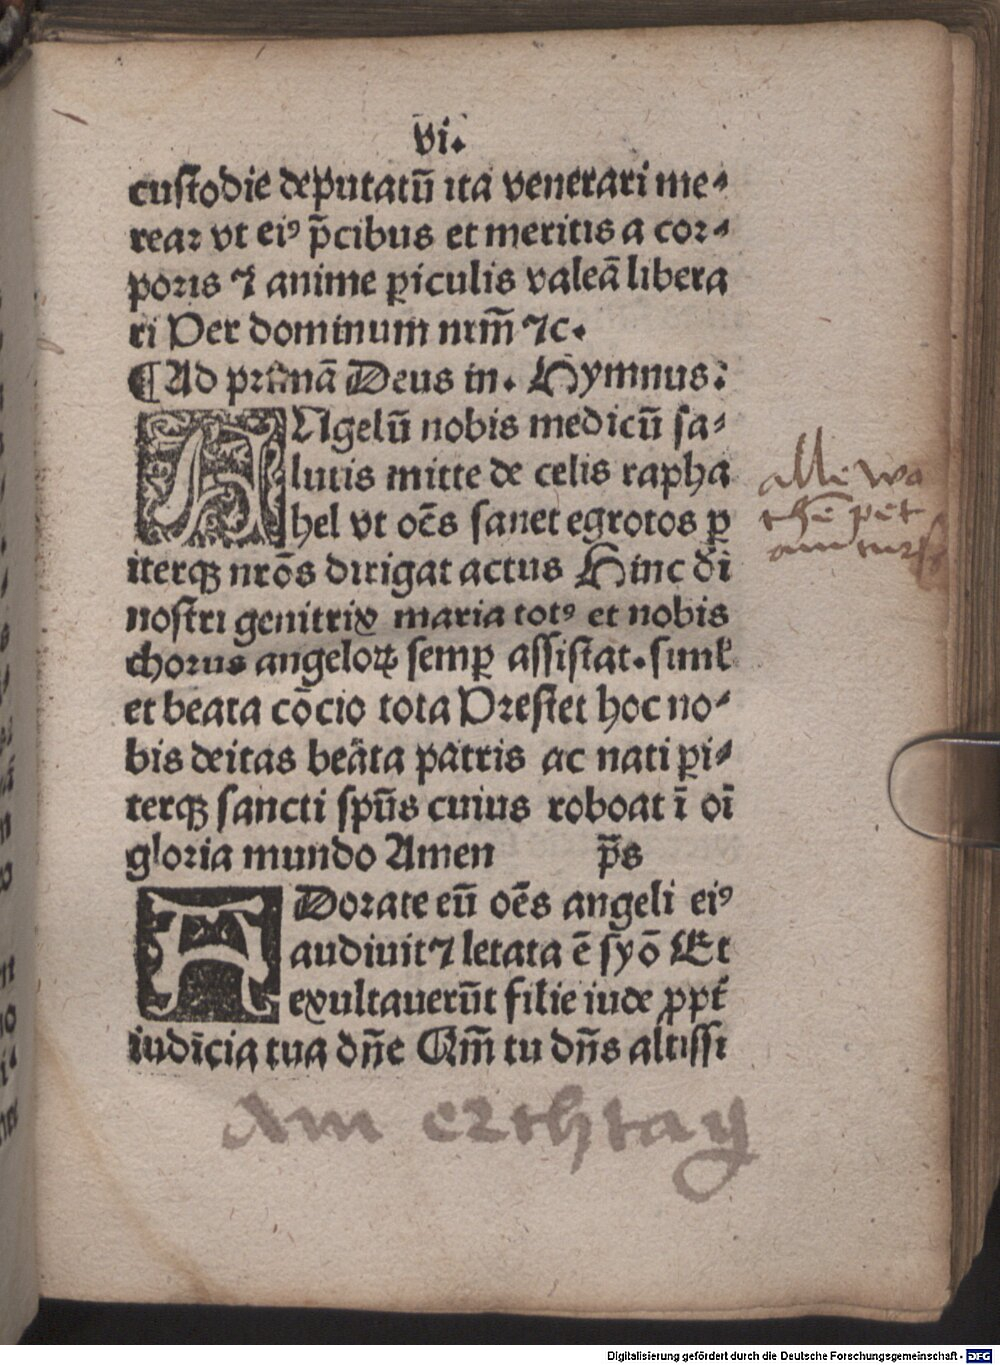 vi.
custodie deputatū ita venerari me⸗
rear vt ei⁹ p̄cibus et meritis a cor⸗
poris ⁊ anime ꝑiculis valeā libera
ri Per dominum nrm̄ ⁊c.
¶ Ad primā Deus in. Hymnus:
ANgelū nobis medicū sa⸗
lutis mitte de celis rapha
hel vt oēs sanet egrotos ꝑ
iterqꝫ nrōs dirigat actus Hinc dī
nostri genitrix maria tot⁹ et nobis
chorus angeloꝝ semꝑ assistat. siml̄
et beata cōcio tota Prestet hoc no⸗
bis deitas beāta patris ac nati ꝑi⸗
terqꝫ sancti spūs cuius roboat ī oī
gloria mundo Amen p̄s
ADorate eū oēs angeli ei⁹
audiuit ⁊ letata ē syō Et
exultauerūt filie iude ꝓpt̄
iudīcia tua dn̄e Qm̄ tu dn̄s altissi
alle wo
chē pet
am erchtag
Digitalisierung gefördert durch die Deutsche Forschungsgemeinschaft - DFG